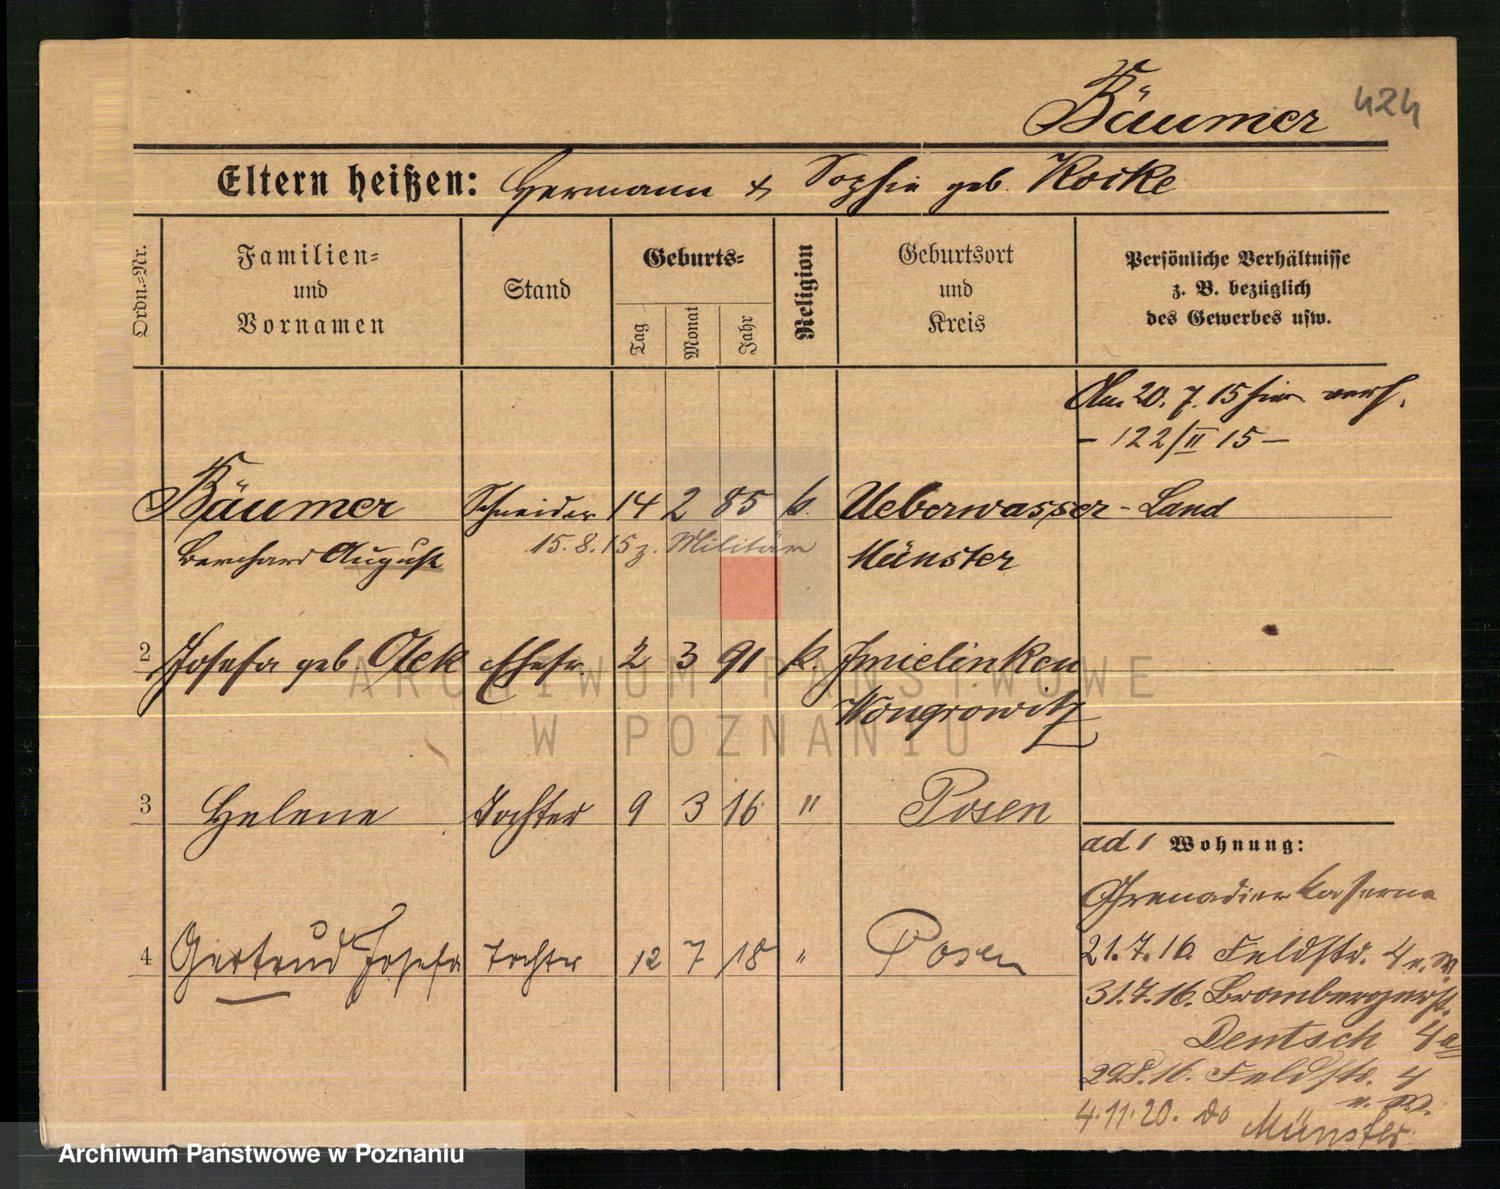 Bäumer 424
Eltern heißen: Hermann & Sophie geb. Kocke
Ordn.-Nr.
Familien-
und
Vornamen
Stand
Geburts-
Tag
Monat
Jahr
Religion
Geburtsort
und
Kreis
Persönliche Verhältnisse
z. B. bezüglich
des Gewerbes usw.
Am 20. 7. 15 hier verh.
- 122/II 15 -
Bäumer Schneider 14 2 85 k. Ueberwasser - Land
Bernhard August 15. 8. 15 z. Militär Münster
2 Josefa geb. Olek Ehefr. 2 3 91 k. Jmielinken
Wongrowitz
3 Helene Tochter 9 3 16 " Posen
ad 1 Wohnung:
Grenadierkaserne
4 Gertrud Josefa Tochter 12 7 18 " Posen
21. 7. 16 Feldstr. 4 n. W.
31. 7. 16. Brombergerst.
Dentsch 4a
29.8. 16. Feldstr. 4
n. W.
4. 11. 20. do Münster
ARCHIWUM PAŃSTWOWE
W POZNANIU
Archiwum Państwowe w Poznaniu